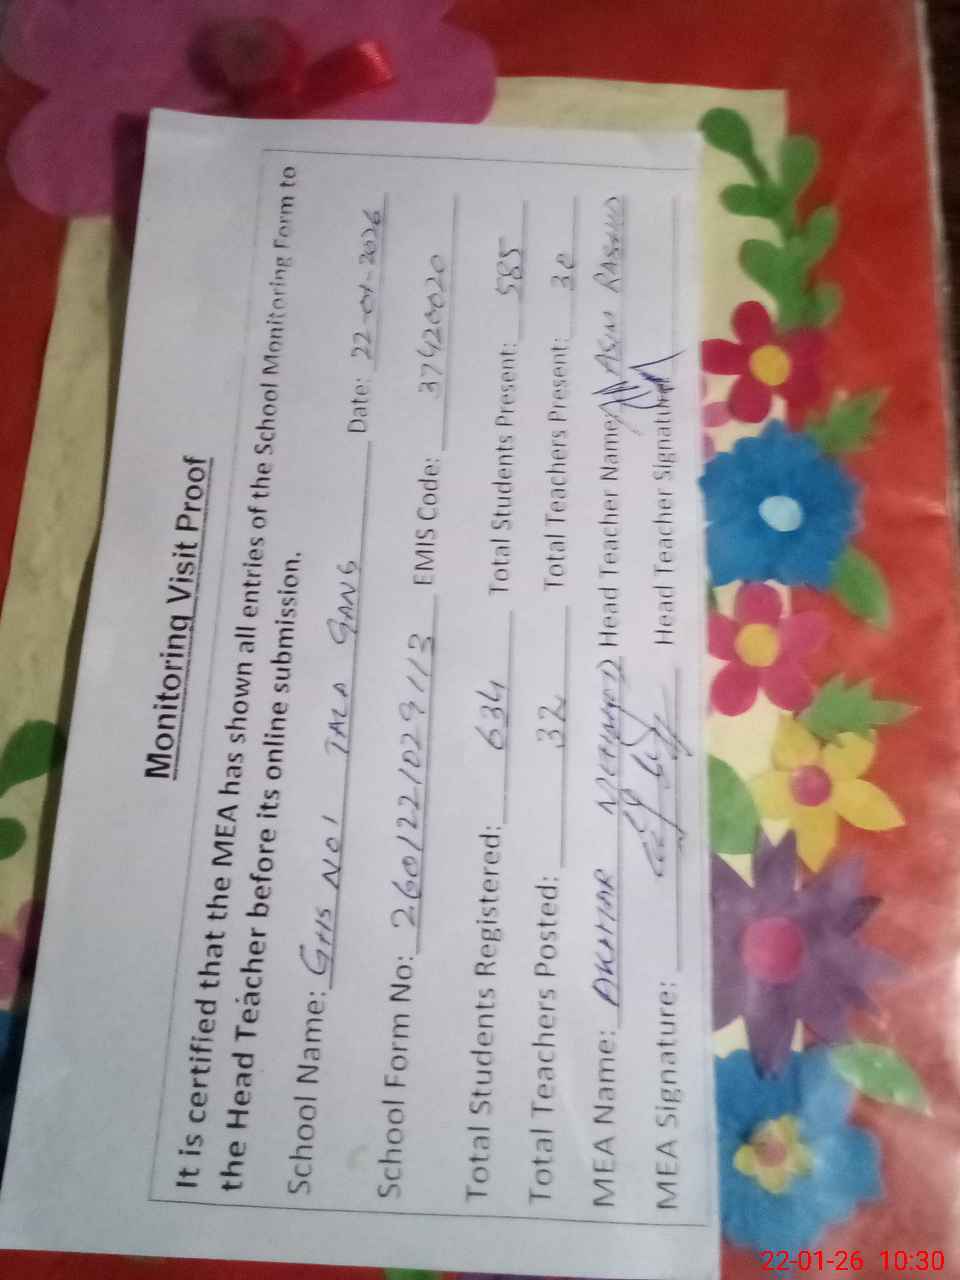 Monitoring Visit Proof
It is certified that the MEA has shown all entries of the School Monitoring Form to
the Head Teacher before its online submission.
School Name: GHS NO1 TALA GANG Date: 22-01-2026
School Form No: 2601221029113 EMIS Code: 37420020
Total Students Registered: 634 Total Students Present: 585
Total Teachers Posted: 32 Total Teachers Present: 30
MEA Name: AKHTAR MEHMOOD Head Teacher Name: ASIM RASHID
MEA Signature: Head Teacher Signature:
22-01-26 10:30